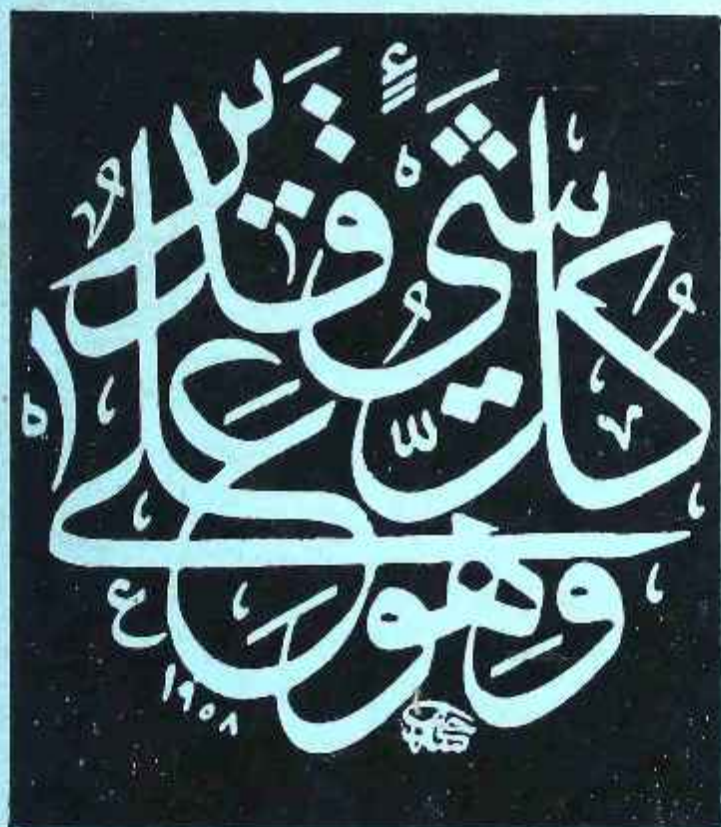 وَهُوَ عَلَىٰ كُلِّ شَيْءٍ قَدِيرٌ
١٩٥٨